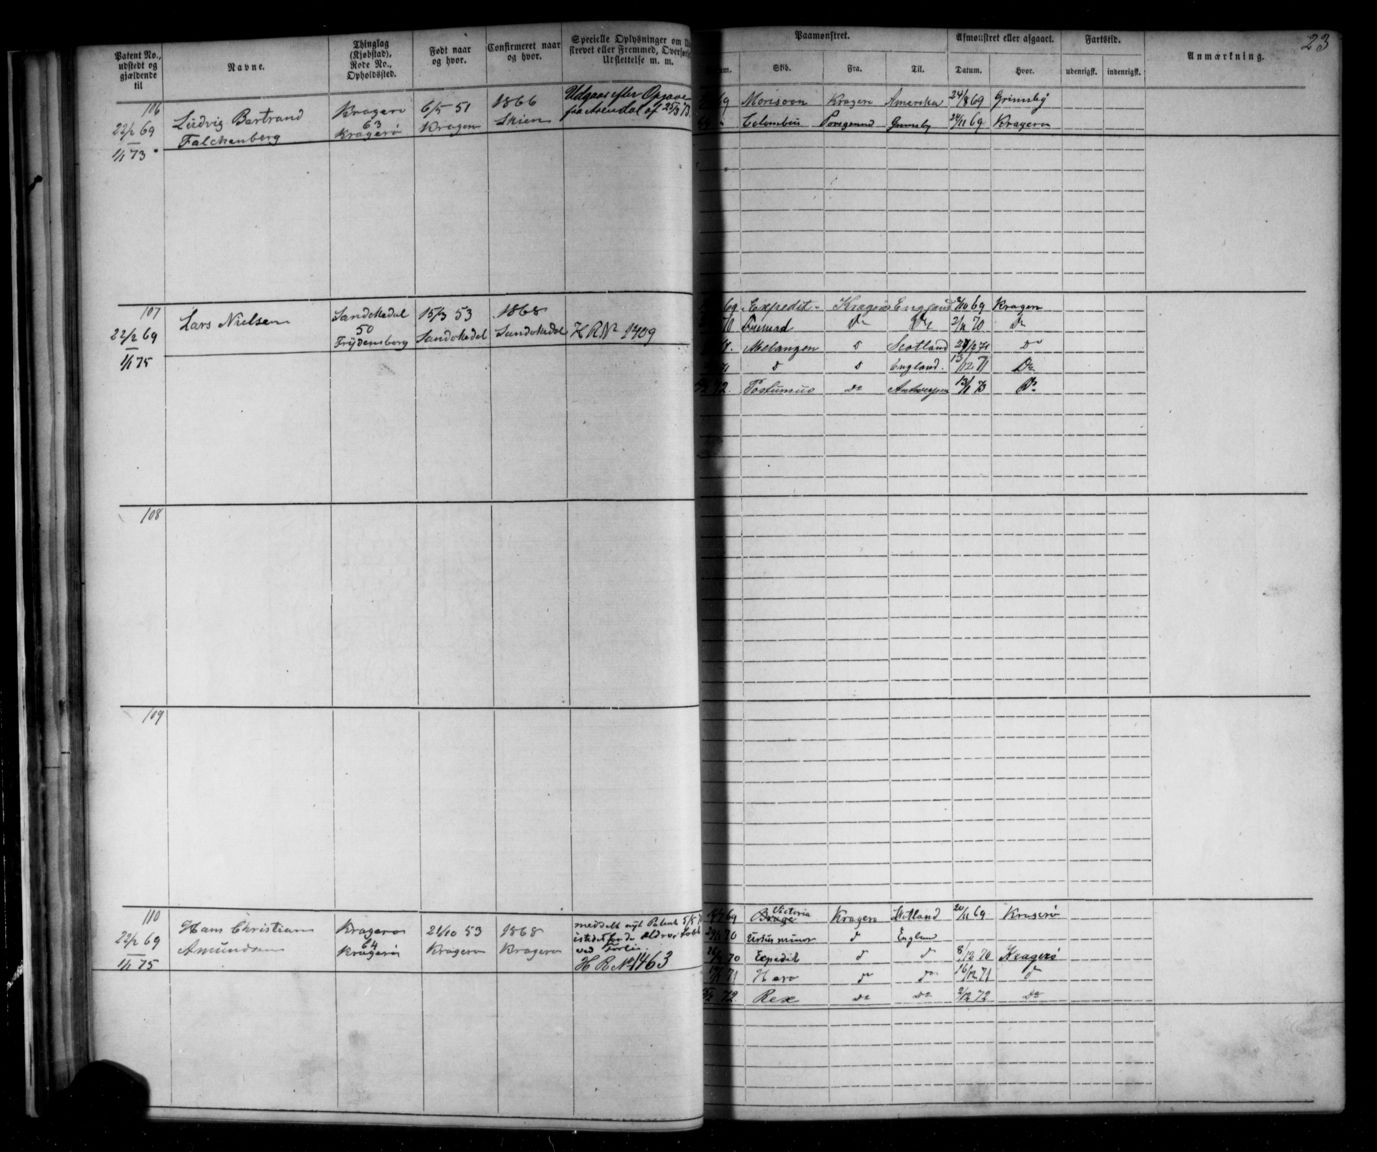 23
Patent No., udstedt og gjældende til
Navne.
Thinglag (Kjøbstad), Rode No., Opholdssted.
Født naar og hvor.
Confirmeret naar og hvor.
Specielle Oplysninger om
frevet eller Fremmed, Overført
Urstettelse m. m.
Paamønstret.
Skib.
Fra.
Til.
Afmønstret eller afgaaet.
Datum.
Hvor.
Fartstid.
udenrigsk.
indenrigsk.
Anmærkning.
106
22/2 69
1/1 73
Ludvig Bertrand
Falckenberg
Kragerø
63
Kragerø
6/5 51
Kragerø
1866
Skien
Udgaar efter Opgave
fra Arendal af 25/3 73
69 Kragerø Amerika 24/8 69 Grimsby
Colombus Porsgrund Grimsby 24/11 69 Kragerø
107
22/2 69
1/1 75
Lars Nielsen
Sandøkedal
50
Frydensborg
15/3 53
Sandøkedal
1868
Sandøkedal
H R No 1409
69 Expedit Kragerø England /10 69 Kragerø
70 Do Do 2/11 70 Do
Melanzen d Scotland 2 71 do
d d England 13/12 71 Do
72 Postumus do Antwerpen 13/1 73 Do
108
109
110
22/2 69
1/1 75
Hans Christian
Amundsen
Kragerø
64
Kragerø
21/10 53
Kragerø
1868
Kragerø
meddelt nyt Patent 5/5 7
istedetfor de ældre
ved Forlis
H R No 1463
69 Victoria
Brage Kragerø Skotland 20/11 69 Kragerø
70 Ursus minor d England
70 Expedit d d 8/12 70 Kragerø
71 Hero d do 16/12 71 d
72 Rex do do 2/12 72 do